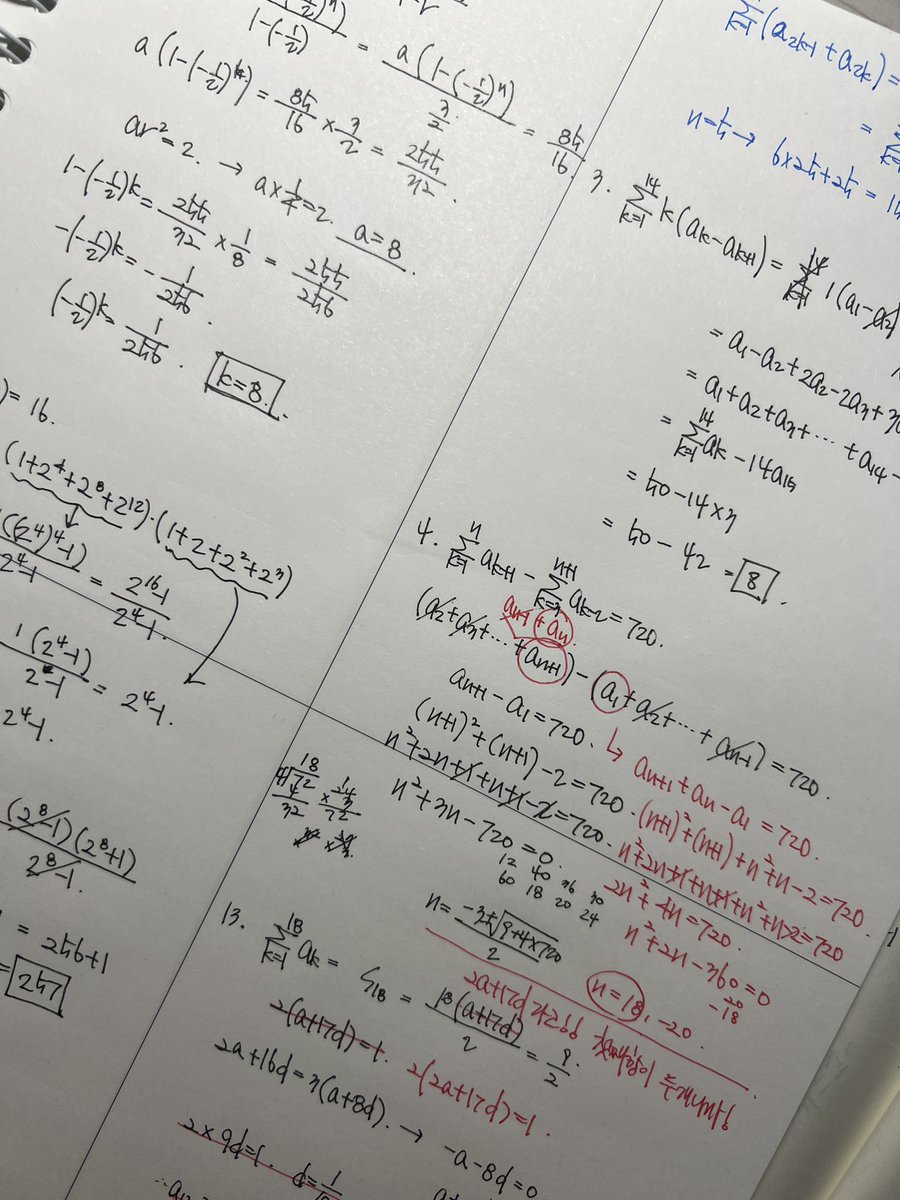 1-(-1/2) = a(1-(-1/2)ⁿ) / 3/2 = 85/16
a(1-(-1/2)ᵏ) = 85/16 × 3/2 = 255/32.
ar²=2. → a×1/4=2. a=8
1-(-1/2)k = 255/32 × 1/8 = 255/256
-(-1/2)k = -1/256.
(-1/2)k = 1/256. k=8.
)=16.
(1+2⁴+2⁸+2¹²)·(1+2+2²+2³)
((2⁴)⁴-1) / 2⁴-1 = 2¹⁶-1 / 2⁴-1.
1(2⁴-1) / 2-1 = 2⁴-1.
2⁴-1.
(2⁸-1)(2⁸+1) / 2⁸-1.
= 256+1
= 257
Σ k=1 (a2k-1 + a2k) =
n=5 → 6×25+25 = 1
3. Σ k=1 14 k(ak-ak+1) = Σ k=1 14 1(a1-a2)
= a1-a2+2a2-2a3+3
= a1+a2+a3+⋯+a14-
= Σ k=1 14 ak-14a15
= 50-14×3
= 50-42 = 8.
4. Σ k=1 n ak+1 - Σ k=3 n+1 ak-2 = 720.
an-1 + an
(a2+a3+⋯+an+1) - (a1+a2+⋯+an-1) = 720.
an+1-a1=720. ↳ an+1+an-a1=720.
(n+1)²+(n+1)-2=720. (n+1)²+(n+1)+n²+n-2=720.
n²+2n+1+n+1-2=720. n²+2n+1+n+1+n²+n-2=720
n²+3n-720=0. 2n²+4n=720.
12 40 36 30 n²+2n-360=0
60 18 20 24 -20
-18
n = -3±√9+4×720 / 2 n=18, -20.
18
4 72
4
32
24
× 3
72
13. Σ k=1 18 ak = S18 = 18(a+17d) / 2 = 9/2.
2a+17d
2(a+17d)=1. 2(2a+17d)=1.
2a+16d=3(a+8d). → -a-8d=0
2×9d=1. d=1